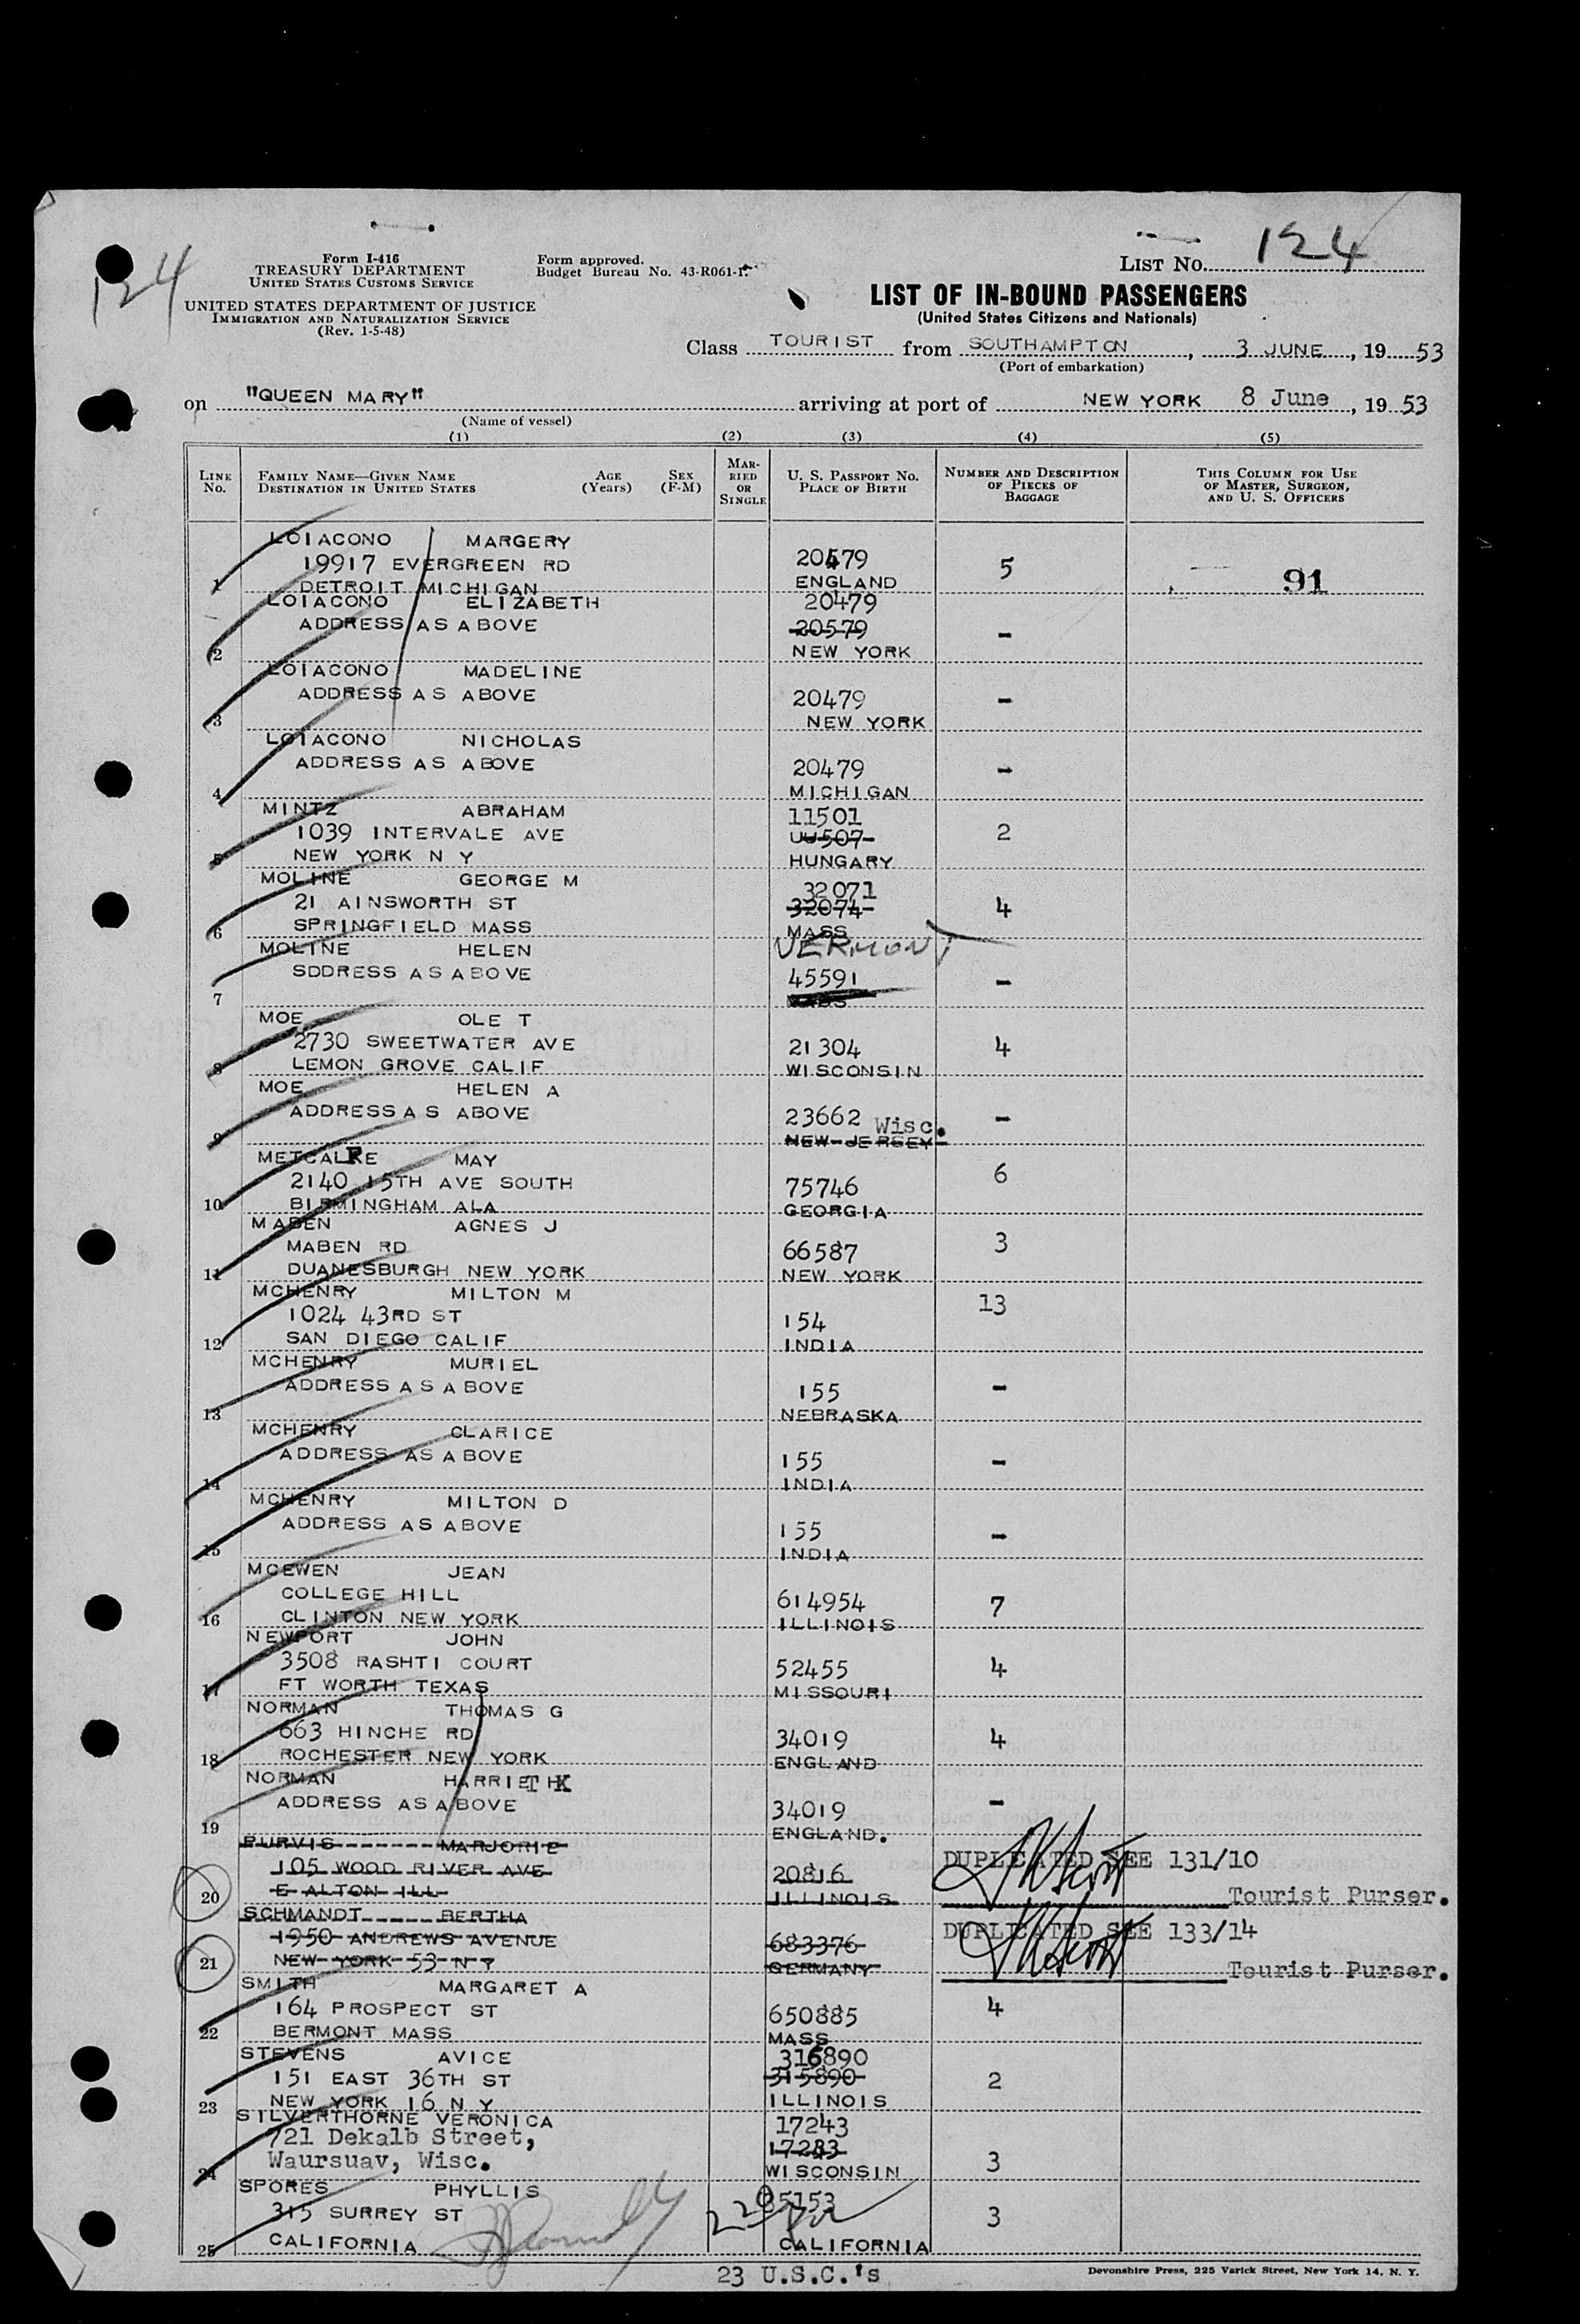 124
124
Form I-416
TREASURY DEPARTMENT
UNITED STATES CUSTOMS SERVICE
UNITED STATES DEPARTMENT OF JUSTICE
IMMIGRATION AND NATURALIZATION SERVICE
(Rev. 1-5-48)
Form approved.
Budget Bureau No. 43-R061-1.
LIST NO.
LIST OF IN-BOUND PASSENGERS
(United States Citizens and Nationals)
Class TOURIST from SOUTHAMPTON, 3 JUNE, 1953
(Port of embarkation)
on "QUEEN MARY" arriving at port of NEW YORK 8 June, 1953
(Name of vessel)
(1) (2) (3) (4) (5)
LINE No. FAMILY NAME—GIVEN NAME DESTINATION IN UNITED STATES AGE (Years) SEX (F-M) MARRIED OR SINGLE U. S. PASSPORT NO. PLACE OF BIRTH NUMBER AND DESCRIPTION OF PIECES OF BAGGAGE THIS COLUMN FOR USE OF MASTER, SURGEON, AND U. S. OFFICERS
LOIACONO MARGERY
19917 EVERGREEN RD 20479 5 91
1 DETROIT MICHIGAN ENGLAND
LOIACONO ELIZABETH 20479
ADDRESS AS ABOVE 20579 -
2 NEW YORK
LOIACONO MADELINE
ADDRESS AS ABOVE 20479 -
3 NEW YORK
LOIACONO NICHOLAS
ADDRESS AS ABOVE 20479 -
4 MICHIGAN
MINTZ ABRAHAM 11501
1039 INTERVALE AVE UU507 2
5 NEW YORK N Y HUNGARY
MOLINE GEORGE M 32071
21 AINSWORTH ST 32074 4
6 SPRINGFIELD MASS MASS
MOLINE HELEN VERMONT
SDDRESS AS ABOVE 45591 -
7 MASS
MOE OLE T
2730 SWEETWATER AVE 21304 4
8 LEMON GROVE CALIF WISCONSIN
MOE HELEN A
ADDRESS AS ABOVE 23662 Wisc. -
9 NEW JERSEY
METCALFE MAY
2140 15TH AVE SOUTH 75746 6
10 BIRMINGHAM ALA GEORGIA
MABEN AGNES J
MABEN RD 66587 3
11 DUANESBURGH NEW YORK NEW YORK
MCHENRY MILTON M
1024 43RD ST 154 13
12 SAN DIEGO CALIF INDIA
MCHENRY MURIEL
ADDRESS AS ABOVE 155 -
13 NEBRASKA
MCHENRY CLARICE
ADDRESS AS ABOVE 155 -
14 INDIA
MCHENRY MILTON D
ADDRESS AS ABOVE 155 -
15 INDIA
MCEWEN JEAN
COLLEGE HILL 614954 7
16 CLINTON NEW YORK ILLINOIS
NEWPORT JOHN
3508 RASHTI COURT 52455 4
17 FT WORTH TEXAS MISSOURI
NORMAN THOMAS G
663 HINCHE RD 34019 4
18 ROCHESTER NEW YORK ENGLAND
NORMAN HARRIET K
ADDRESS AS ABOVE 34019 -
19 ENGLAND.
PURVIS MARJORIE
105 WOOD RIVER AVE 20816 DUPLICATED SEE 131/10
20 E ALTON ILL ILLINOIS Tourist Purser.
SCHMANDT BERTHA
1950 ANDREWS AVENUE 683376 DUPLICATED SEE 133/14
21 NEW YORK 53 N Y GERMANY Tourist Purser.
SMITH MARGARET A
164 PROSPECT ST 650885 4
22 BERMONT MASS MASS
STEVENS AVICE 316890
151 EAST 36TH ST 315890 2
23 NEW YORK 16 N Y ILLINOIS
SILVERTHORNE VERONICA 17243
721 Dekalb Street, 17283
24 Waursuav, Wisc. WISCONSIN 3
SPORES PHYLLIS 35153
315 SURREY ST 3
25 CALIFORNIA CALIFORNIA
23 U.S.C.'s
Devonshire Press, 225 Varick Street, New York 14, N. Y.